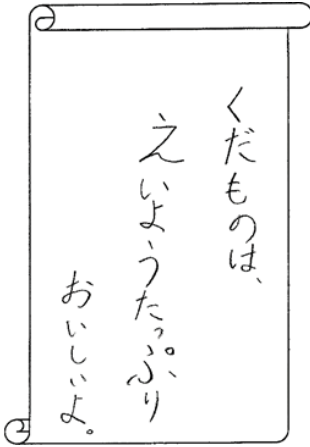 くだものは、
えいようたっぷり
おいしいよ。